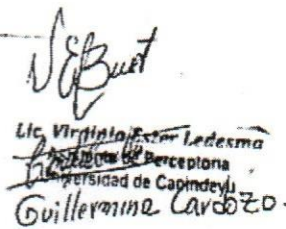 Lic. Virginia Ester Ledesma
Perceptoria
Universidad de Canindeyú
Guillermina Cardozo.